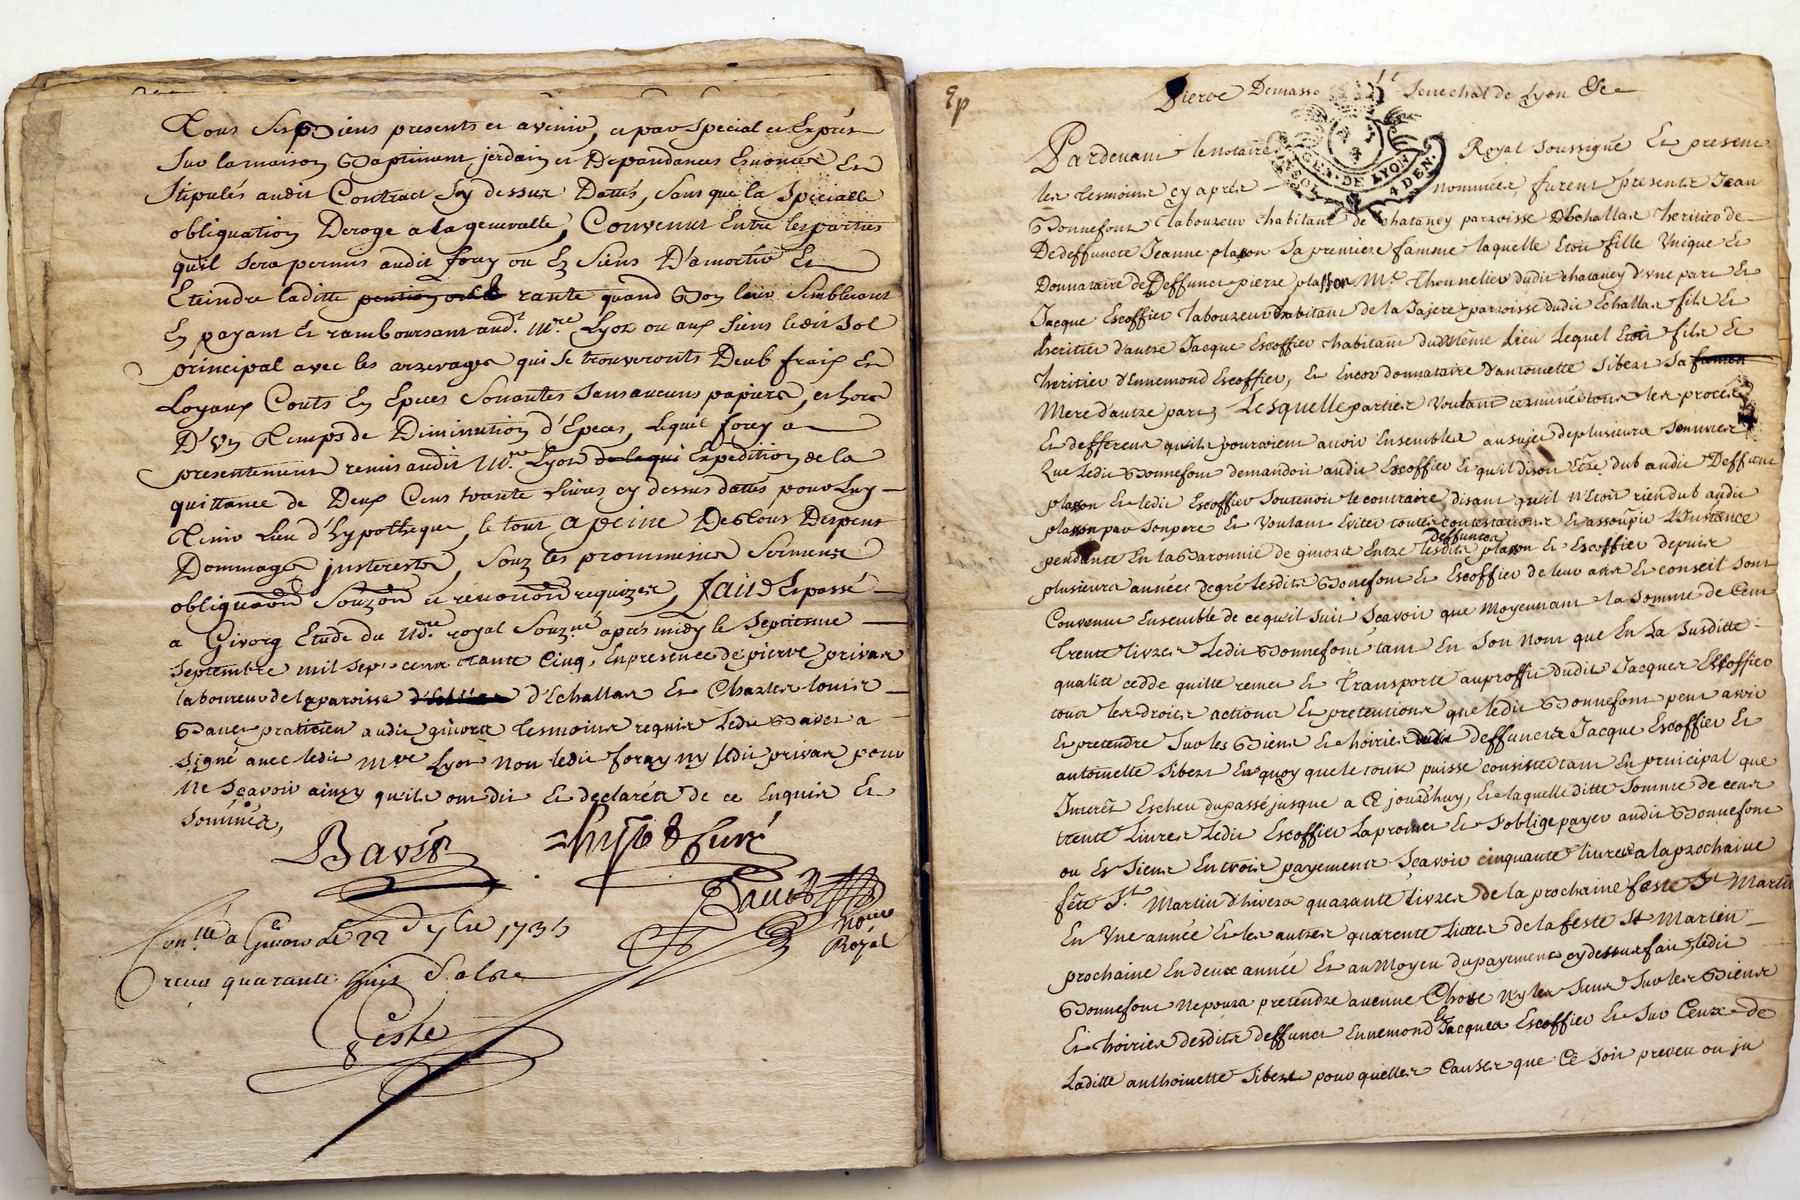 Tous ses Biens presents et avenir, et par special et Exprés
Sur la maison Baptiment jerdain et Depandances Enoncés et
Stipulés audit Contract Sy dessus Dattés, Sans que la Specialle
obliguation Deroge a la generalle, Convenus Entre les parties
qu'il sera permis audit foray ou Es Siens D'amortir Et
Eteindre laditte rante quand Bon leur Sembleront
En payant et ramboursant aud.t M.re Lyon ou aux Siens ledit Sol
principal avec les arrerages qui se trouveronts Deub fraix Et
Loyaux Couts En Epeces Sonantes Sans aucuns papiers, et hors
D'Un Temps de Diminution d'Epeces, lequel foray a
presentement remis audit M.re Lyon de laqui Expedition de la
quittance de Deux Cens trante livres cy dessus dattés pour luy
Tenir Lieu d'hypotheque, le tout a peine De tous Depens
Dommages jnterests, Souz les prommisses Serments
obliguaons Souzons et renonons requizes, fait Et passé
a Givorq Etude du No.re royal Souz.né apres midy le Septieme
Septembre mil sept cent trante Cinq, En presence de pierre privas
laboureur de la paroisse d'Echallas Et Charles louis
Baves praticien audit givors temoins requis ledit Baves a
signé avec ledit M.re Lyon non ledit foray ny ledit privas pour
Ne Sçavoir ainsy qu'ils ont dit Et declarés de ce Enquis Et
sommés,
Baves
Con.llé a Givors le 22 7bre 1735
recu quarante huit Sols
Ceste
No.re Royal
Pierre Demasso Senechal de Lyon &c
GEN. DE LYON
4 DEN.
Pardevant le Notaire Royal Soussigné Et present
les temoins cy aprés nommées, furent presents Jean
Bonnefont laboureur habitant de Chataney parroisse D'Echallas heritier de
De deffuncte Jeanne plasson Sa premiere famme laquelle Etoit fille Unique Et
Donnataire de Deffunct pierre plasson M.e Thonnelier dudit Chataney d'une part Et
Jacque Escoffier laboureur habitant de la Jajere parroisse dudit Echallas fils Et
heritier d'autre Jacque Escoffier habitant du Même Lieu Lequel Etoit fils Et
heritier d'Ennemond Escoffier, Et Encor donnataire d'antoinette Sibert Sa famme
Mere d'autre part, Lesquelle parties Voulant terminée tous les procés
Et defferens qu'ils pouraient avoir Ensembles au sujet de plusieurs Sommes
Que ledit Bonnefont demandoit audit Escoffier Et qu'il disoit Etre dub audit Deffunt
plasson Et ledit Escoffier Soutenoit le contraire, disant qu'il N'Etoit rien dub audit
plasson par Son pere Et Voulant Eviter toutes contestations Et assoupir L'Instance
deffuncts
pendante En la Baronnie de givors Entre lesdits plasson Et Escoffier depuis
plusieurs années de gré lesdits Bonnefont Et Escoffier de leur avis Et conseil Sont
Convenus Ensemble de ce qu'il Suit Sçavoir que Moyennant la Somme de Cent
trente livres Ledit Bonnefont tant En Son Nom que En La Susditte
qualité cedde quitte remet Et Transporte au proffit dudit Jacques Escoffier
tous les droits actions Et pretentions que ledit Bonnefont peut avoir
Et pretendre Sur les Biens Et hoiries deffuncts Jacque Escoffier Et
antoinette Sibert En quoy que le tout puisse consister tant En principal que
Interêt Escheu du passé jusque a Ce jourd'huy, Et laquelle ditte Somme de cent
trente Livres Ledit Escoffier La promet Et S'oblige payer audit Bonnefont
ou Es Siens En trois payements Sçavoir cinquante livres a la prochaine
fête S.t Martin d'hivers quarante livres de la prochaine feste S.t Martin
En Une année Et les autres quarente livres de la feste St Martin
prochaine En deux année Et au Moyen du payement cy dessus fait, ledit
Bonnefont Ne poura pretendre aucune Chose N'y les Siens Sur les Biens
Et hoiries desdits deffunct Ennemond & Jacques Escoffier Et Sur Ceux de
Laditte anthoinette Sibert pour quelles Causes que Ce Soit preveu ou in